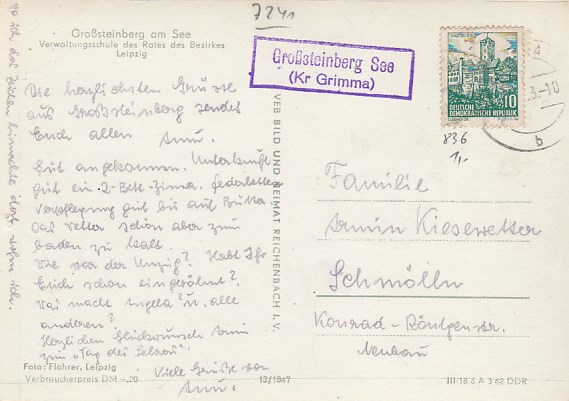 7241
Großsteinberg am See
Verwaltungsschule des Rates des Bezirkes
Leipzig
Großsteinberg See
(Kr Grimma)
10
DEUTSCHE
DEMOKRATISCHE REPUBLIK
836
1,-
3-10
b
Die herzlichsten Grüsse
aus Großsteinberg sendet
Euch allen
Gut angekommen. Unterkunft
gut ein 2-Bett-Zimm. Federbetten
Verpflegung gut bis auf Butter
Das Wetter schön aber zum
baden zu kalt.
Wie war der Umzug? Habt Ihr
Euch schon eingewöhnt?
Was macht Angela? u. alle
anderen?
Herzlichen Glückwunsch
zum "Tag des
Viele Grüße von
Foto: Flohrer, Leipzig
Verbraucherpreis DM -,20
13/1867
VEB BILD UND HEIMAT REICHENBACH I. V.
Familie
Armin Kiesewetter
Schmölln
Konrad-Röntgen-str.
Neubau
III/18/6 A 3/62 DDR